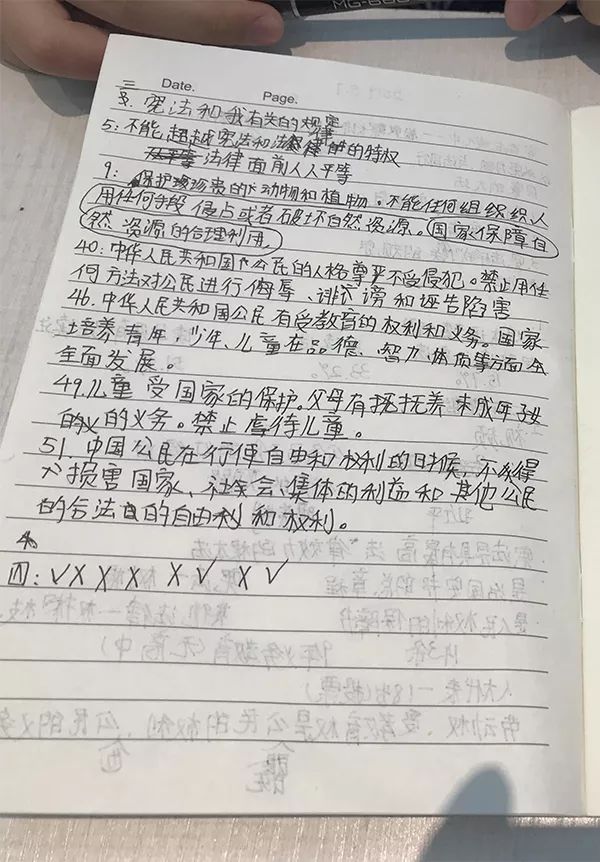 MG-666
Date. Page.
三 宪法和我有关的规定
5:不能超越宪法和法律的特权
法律面前人人平等
9:保护珍贵的动物和植物。不能任何组织、人
用任何手段 侵占或者破坏自然资源。国家保障自
然资源的合理利用。
40:中华人民共和国公民的人格尊严不受侵犯。禁止用任
何方法对公民进行侮辱、诽谤和诬告陷害
46.中华人民共和国公民有受教育的权利和义务。国家
培养青年,少年、儿童在品德、智力、体质等方面全
全面发展。
49.儿童受国家的保护。父母有抚养未成年子女
的义务。禁止虐待儿童。
51.中国公民在行使自由和权利的时候,不得
损害国家、社会、集体的利益和其他公民
的合法的自由和权利。
四:√XXX X√ X√